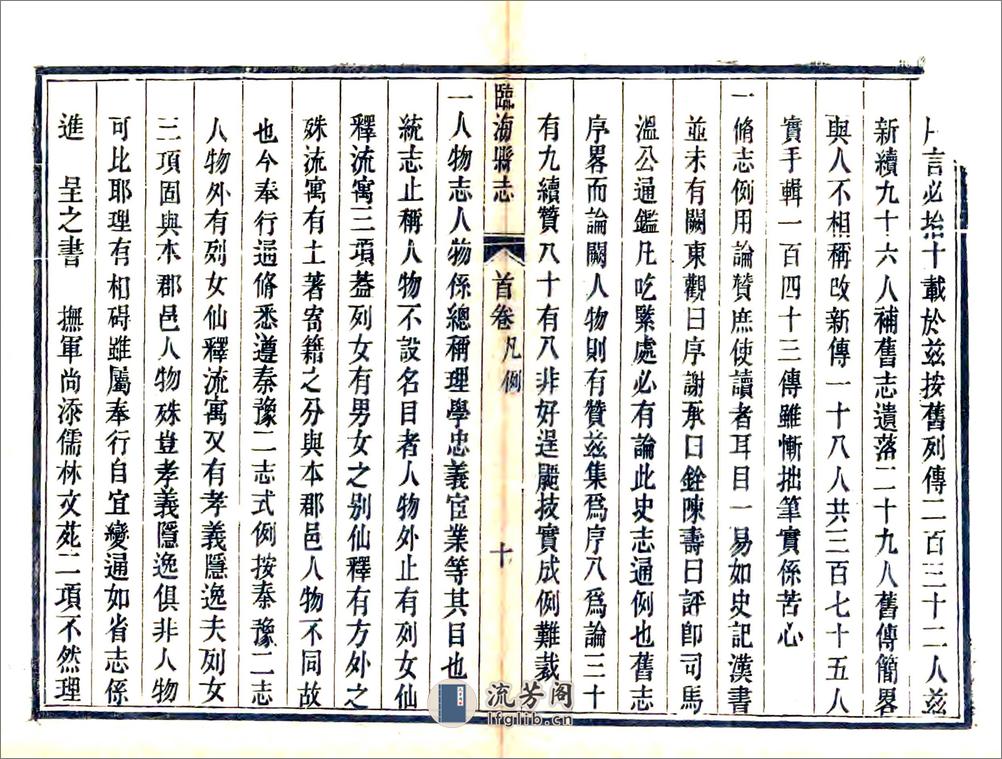 言必拾十載於兹按舊列傳二百三十二人兹
新續九十六人補舊志遺落二十九人舊傳簡畧
與人不相稱改新傳一十八人共三百七十五人
實手輯一百四十三傳雖慚拙筆實係苦心
一脩志例用論贊庶使讀者耳目一易如史記漢書
並未有闕東觀曰序謝承曰銓陳壽曰評卽司馬
溫公通鑑凡吃緊處必有論此史志通例也舊志
序畧而論闕人物則有贊兹集爲序八爲論三十
有九續贊八十有八非好逞麗技實成例難裁
臨海縣志 首卷 凡例 十
一人物志人物係總稱理學忠義宦業等其目也一
統志止稱人物不設名目者人物外止有列女仙
釋流寓三項蓋列女有男女之別仙釋有方外之
殊流寓有土著寄籍之分與本郡邑人物不同故
也今奉行通脩悉遵秦豫二志式例按秦豫二志
人物外有列女仙釋流寓又有孝義隱逸夫列女
三項固與本郡邑人物殊豈孝義隱逸俱非人物
可比耶理有相碍雖屬奉行自宜變通如省志係
進 呈之書 撫軍尚添儒林文苑二項不然理
流芳阁
lfglib.cn